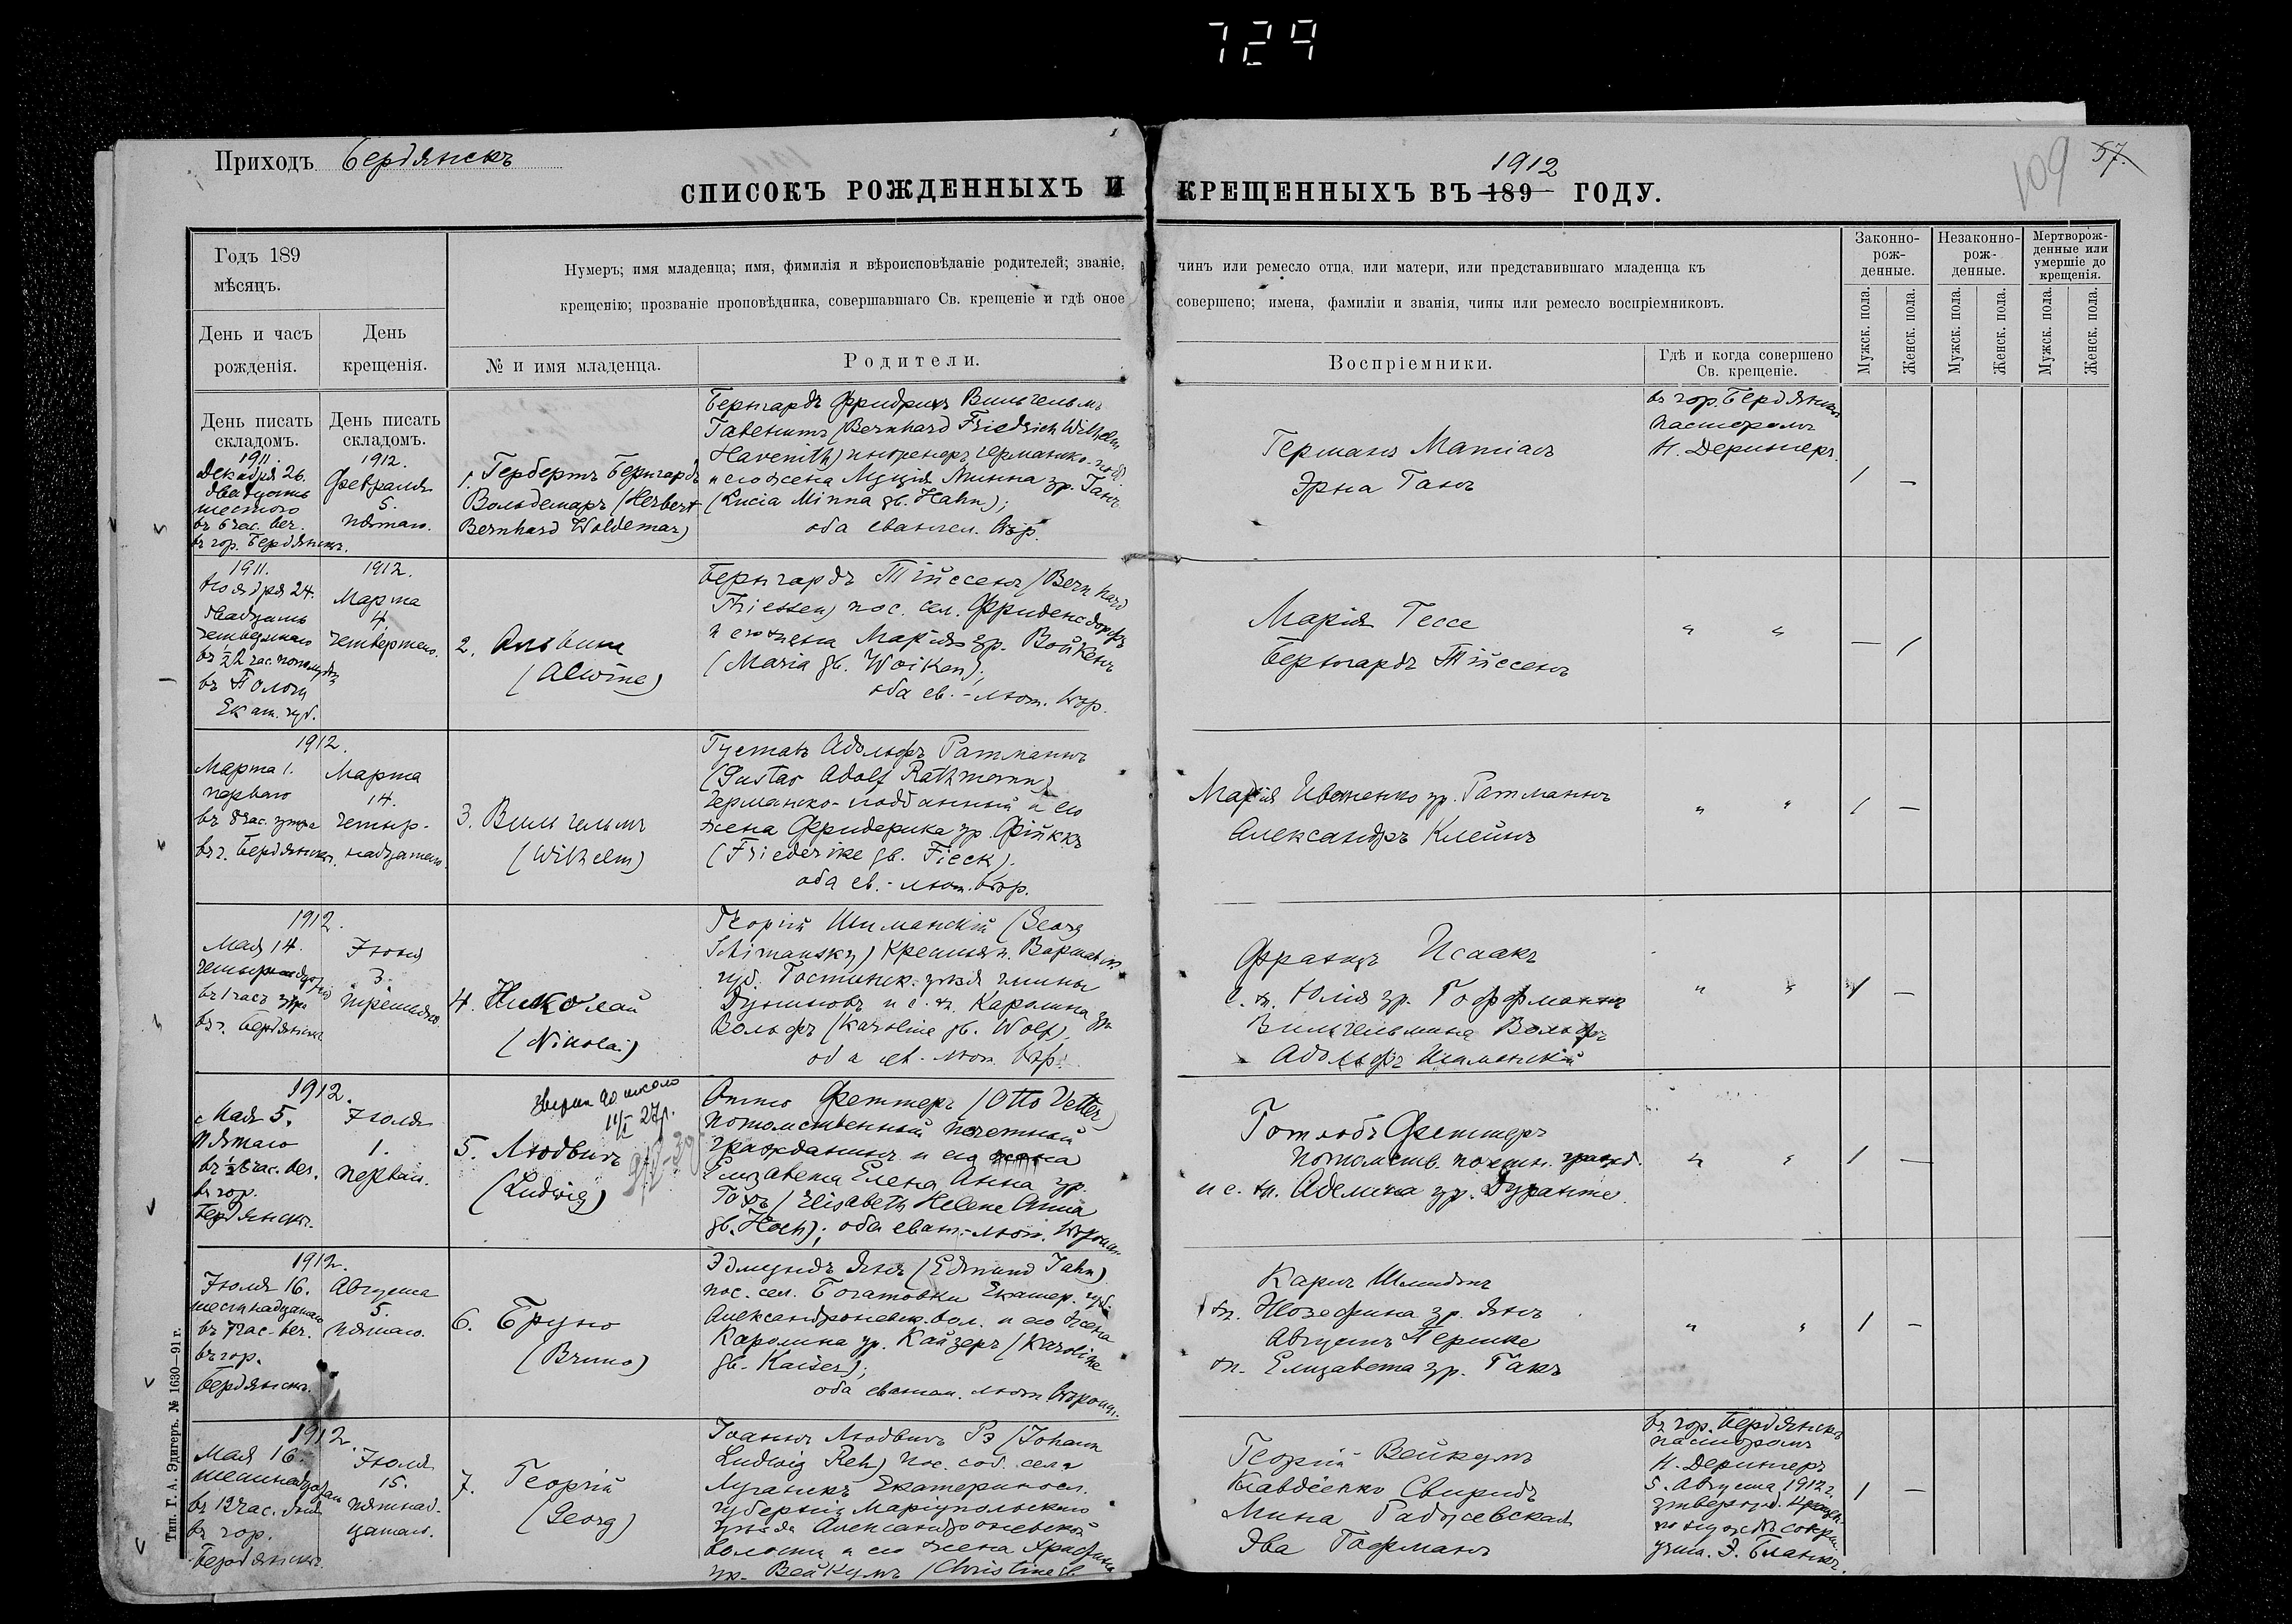 729
Приходъ Бердянскъ
1912
109
57.
СПИСОКЪ РОЖДЕННЫХЪ И КРЕЩЕННЫХЪ ВЪ 189 ГОДУ.
Годъ 189
мѣсяцъ.
День и часъ
рожденія.
День
крещенія.
Нумеръ; имя младенца; имя, фимилія и вѣроисповѣданіе родителей; званіе, чинъ или ремесло отца, или матери, или представившаго младенца къ
крещенію; прозваніе проповѣдника, совершавшаго Св. крещеніе и гдѣ оное совершено; имена, фамиліи и званія, чины или ремесло воспріемниковъ.
№ и имя младенца.
Родители.
Воспріемники.
Гдѣ и когда совершено
Св. крещеніе.
Законно-
рож-
денные.
Незаконно-
рож-
денные.
Мертворож-
денные или
умершіе до
крещенія.
Мужск. пола.
Женск. пола.
Мужск. пола.
Женск. пола.
Мужск. пола.
Женск. пола.
День писать
складомъ.
День писать
складомъ.
1911.
Декабря 26.
двадцать
шестого
въ 6 час. веч.
въ гор. Бердянскѣ.
1912.
Февраля
5.
пятаго.
1. Гербертъ Бернгардъ
Вольдемаръ (Herbert
Bernhard Woldemar)
Бернгардъ Фридрихъ Вильгельмъ
Гавенитъ (Bernhard Friedrich Wilhelm
Havenith) инженеръ германско-подд.
и его жена Луція Минна ур. Ганъ
(Lucia Minna gb. Hahn);
оба евангел. вѣр.
Германъ Матіасъ
Эрна Ганъ
въ гор. Бердянскѣ
пасторомъ
Н. Дерингеръ.
1 —
1911.
Ноября 24.
двадцать
четвертаго
въ 1/2 2 час. пополудни
въ Пологи
Екат. губ.
1912.
Марта
4.
четвертаго.
2. Альвина
(Alwine)
Бернгардъ Тійссенъ (Bernhard
Thiessen) пос. сел. Фриденсдорфъ
и его жена Марія ур. Войкенъ
(Maria gb. Woiken);
оба ев.-лют. вѣр.
Марія Гессе
Бернгардъ Тійссенъ
" "
— 1
1912.
Марта 1.
перваго
въ 8 час. утра
въ г. Бердянскѣ.
Марта
14.
четыр-
надцатаго.
3. Вильгельмъ
(Wilhelm)
Густавъ Адольфъ Ратманнъ
(Gustav Adolf Rathmann)
германско-подданный и его
жена Фридерика ур. Фійккъ
(Friederike gb. Fieck).
оба ев.-лют. вѣр.
Марія Иваненко ур. Ратманнъ
Александръ Клейнъ
" "
1 —
1912.
Мая 14.
четырнадцатаго
въ 1 часъ утра
въ г. Бердянскѣ
Іюня
3.
третьяго.
4. Николай
(Nikolai)
Георгій Шиманскій (Georg
Schimansky) крестьян. Варшавск.
губ. Гостинск. уѣзда гмины
и е. ж. Каролина ур.
Вольфъ (Karoline gb. Wolf)
оба ев.-лют. вѣр.
Францъ Исаакъ
е. ж. Юлія ур. Гоффманнъ
Вильгельмина Вольфъ
Адольфъ Шиманскій
" "
1 —
1912.
Мая 5.
пятаго
въ 1/2 8 час. веч.
въ гор.
Бердянскѣ.
Іюля
1.
перваго.
5. Людвигъ
(Ludwig)
Отто Феттеръ (Otto Vetter)
потомственный почетный
гражданинъ и его жена
Елизавета Елена Анна ур.
Гохъ (Elisabeth Helene Anna
gb. Hoch); оба еванг.-лют. вѣроисп.
Готлобъ Феттеръ
потомств. почетн. гражд.
и е. ж. Аделина ур. Дуранте.
" "
1 —
1912.
Іюля 16.
шестнадцатаго
въ 7 час. веч.
въ гор.
Бердянскѣ.
Августа
5.
пятаго.
6. Бруно
(Bruno)
Эдмундъ Янъ (Edmund Jahn)
пос. сел. Богатовки Екатер. губ.
Александроневск. вол. и его жена
Каролина ур. Кайзеръ (Karoline
gb. Kaiser);
оба евангел. лют. вѣроисп.
Карлъ Шмидтъ
ж. Іозефина ур. Янъ
Августъ Гершке
ж. Елизавета ур. Гакъ
" "
1 —
1912.
Мая 16.
шестнадцатаго
въ 12 час. дня
въ гор.
Бердянскѣ.
Іюля
15.
пятнад-
цатаго.
7. Георгій
(Georg)
Іоаннъ Людвигъ Рэ (Johann
Ludwig Reh) пос. соб. села
Луганскъ Екатериносл.
губерніи Маріупольскаго
уѣзда Александроневской
волости и его жена Христина
ур. Вейкумъ (Christine gb.
Георгій Вейкумъ
Свиридъ
Мина Гадзевская
Эва Гофманъ
въ гор. Бердянскѣ
пасторомъ
Н. Дерингеръ
5. Августа 1912 г.
утвержд. крещ.
по нуждѣ соверш.
учит. Э. Бланкъ.
1 —
Тип. Г. А. Эдигеръ. № 1630—91 г.